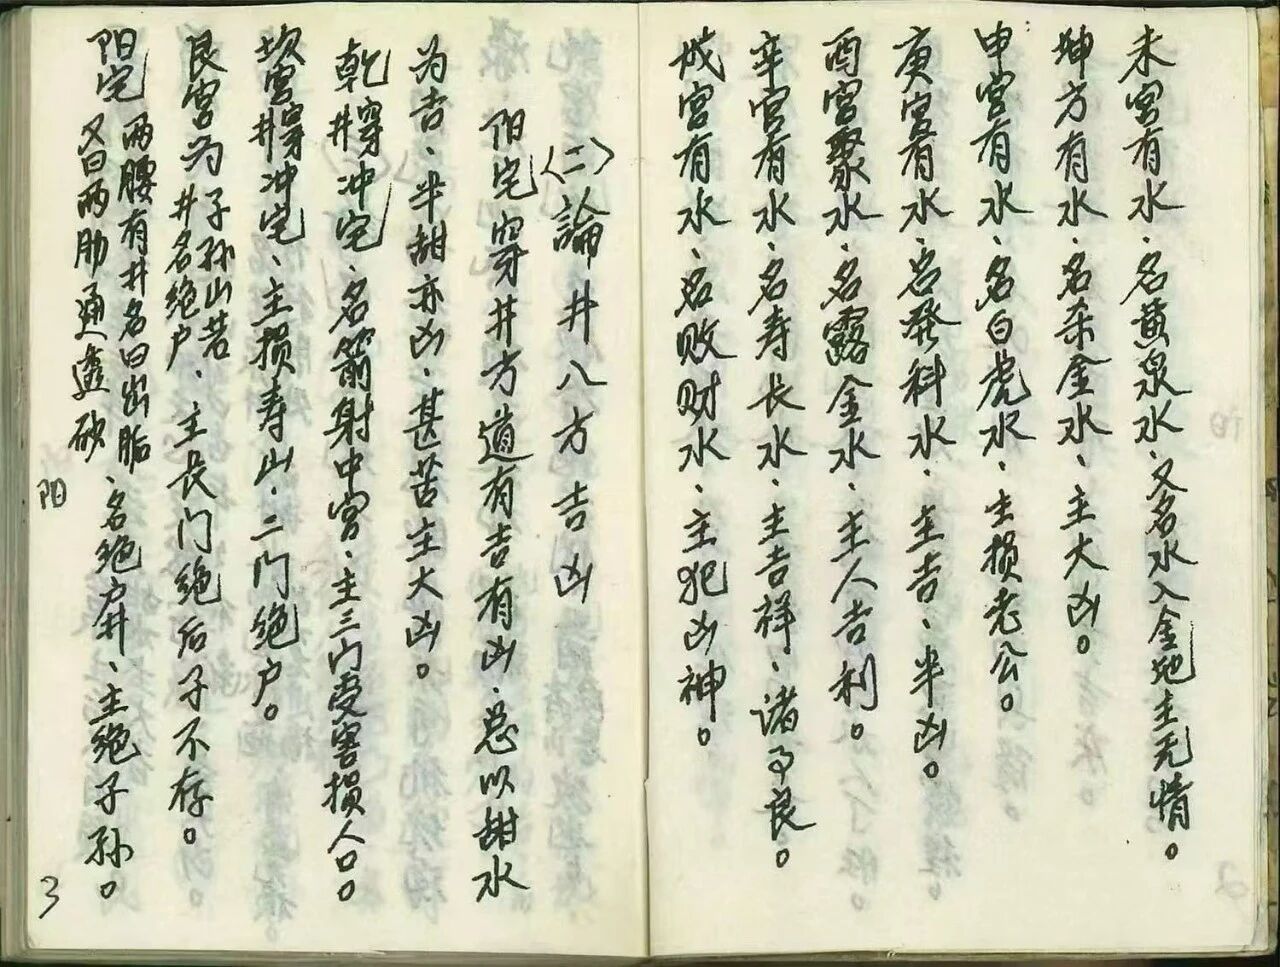 未宫有水、名黄泉水、又名水入金地主无情。
坤方有水、名杀金水、主大凶。
申宫有水、名白虎水、主损老公。
庚宫有水、名発科水、主吉、半凶。
酉宫聚水、名露金水、主人吉利。
辛宫有水、名寿长水、主吉祥、诸事良。
戌宫有水、名败财水、主犯凶神。
〈二〉論井八方吉凶
阳宅穿井方道有吉有凶、总以甜水
为吉、半甜亦凶、甚苦主大凶。
乾井穿冲宅、名箭射中宫、主三门受害损人口。
坎宫井穿冲宅、主损寿山、二门绝户。
艮宫为子孙山若井名绝户、主长门绝后子不存。
阳宅两腰有井名曰出脂
又曰两肋通透砂、名绝户井、主绝子孙。
阳
3